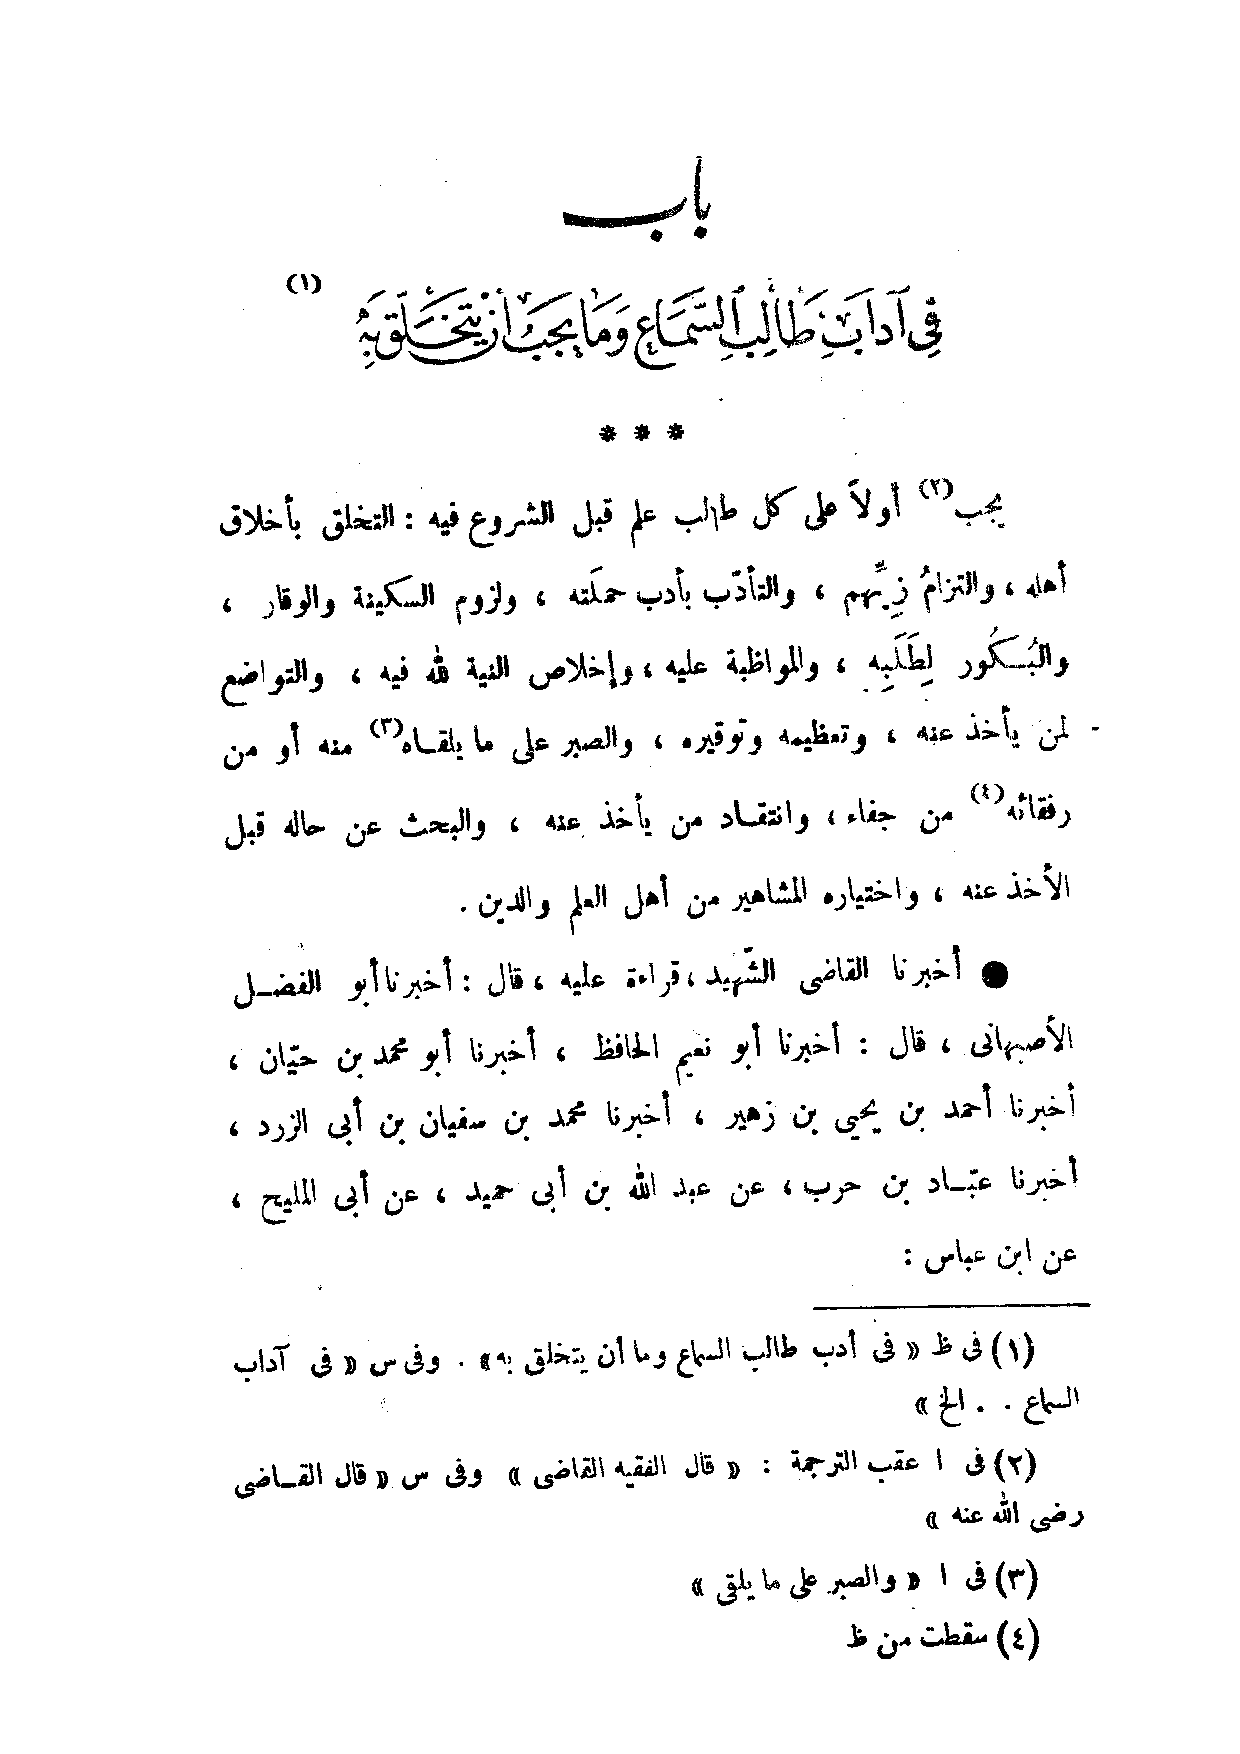 باب
في آدابِ طَالِبِ السَّمَاعِ وَمَا يَجِبُ أَنْ يَتَخَلَّقَ بِهِ (١)
* * *
يجب(٢) أولاً على كل طالب علم قبل الشروع فيه : التخلق بأخلاق
أهله ، والتزامُ زِيِّهم ، والتأدّب بأدب حمَلته ، ولزوم السكينة والوقار ،
والبُكُور لِطَلَبِه ، والمواظبة عليه ، وإخلاص النية لله فيه ، والتواضع
لمن يأخذ عنه ، وتعظيمه وتوقيره ، والصبر على ما يلقاه(٣) منه أو من
رفقائه(٤) من جفاء ، وانتقاد من يأخذ عنه ، والبحث عن حاله قبل
الأخذ عنه ، واختياره المشاهير من أهل العلم والدين .
● أخبرنا القاضى الشّهيد ، قراءة عليه ، قال : أخبرنا أبو الفضل
الأصبهانى ، قال : أخبرنا أبو نعيم الحافظ ، أخبرنا أبو محمد بن حيّان ،
أخبرنا أحمد بن يحيى بن زهير ، أخبرنا محمد بن سفيان بن أبى الزرد ،
أخبرنا عبّاد بن حرب ، عن عبد الله بن أبى حميد ، عن أبى المليح ،
عن ابن عباس :
(١) فى ظ « فى أدب طالب السماع وما أن يتخلق به» . وفى س « فى آداب
السماع . . الخ »
(٢) فى ا عقب الترجمة : « قال الفقيه القاضى » وفى س « قال القاضى
رضى الله عنه »
(٣) فى ا « والصبر على ما يلقى »
(٤) سقطت من ظ